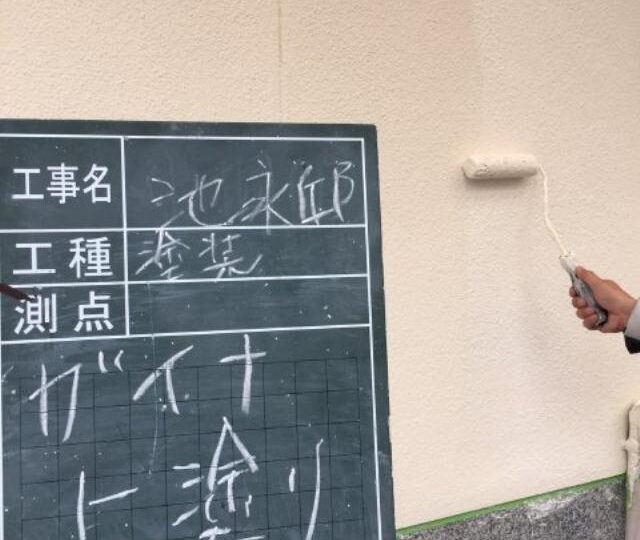 工事名 池永邸
工種 塗装
測点
ガイナ
上塗り